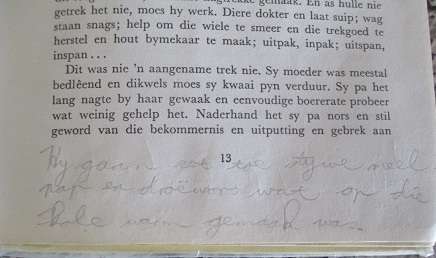 getrek het nie, moes hy werk. Diere dokter en laat suip; wag
staan snags; help om die wiele te smeer en die trekgoed te
herstel en hout bymekaar te maak; uitpak, inpak; uitspan,
inspan ...
Dit was nie 'n aangename trek nie. Sy moeder was meestal
bedlêend en dikwels moes sy kwaai pyn verduur. Sy pa het
lang nagte by haar gewaak en eenvoudige boererate probeer
wat weinig gehelp het. Naderhand het sy pa nors en stil
geword van die bekommernis en uitputting en gebrek aan
13
Hy gaan eet toe stywe meel
pap en droëwors wat op die
kole warm gemaak was.